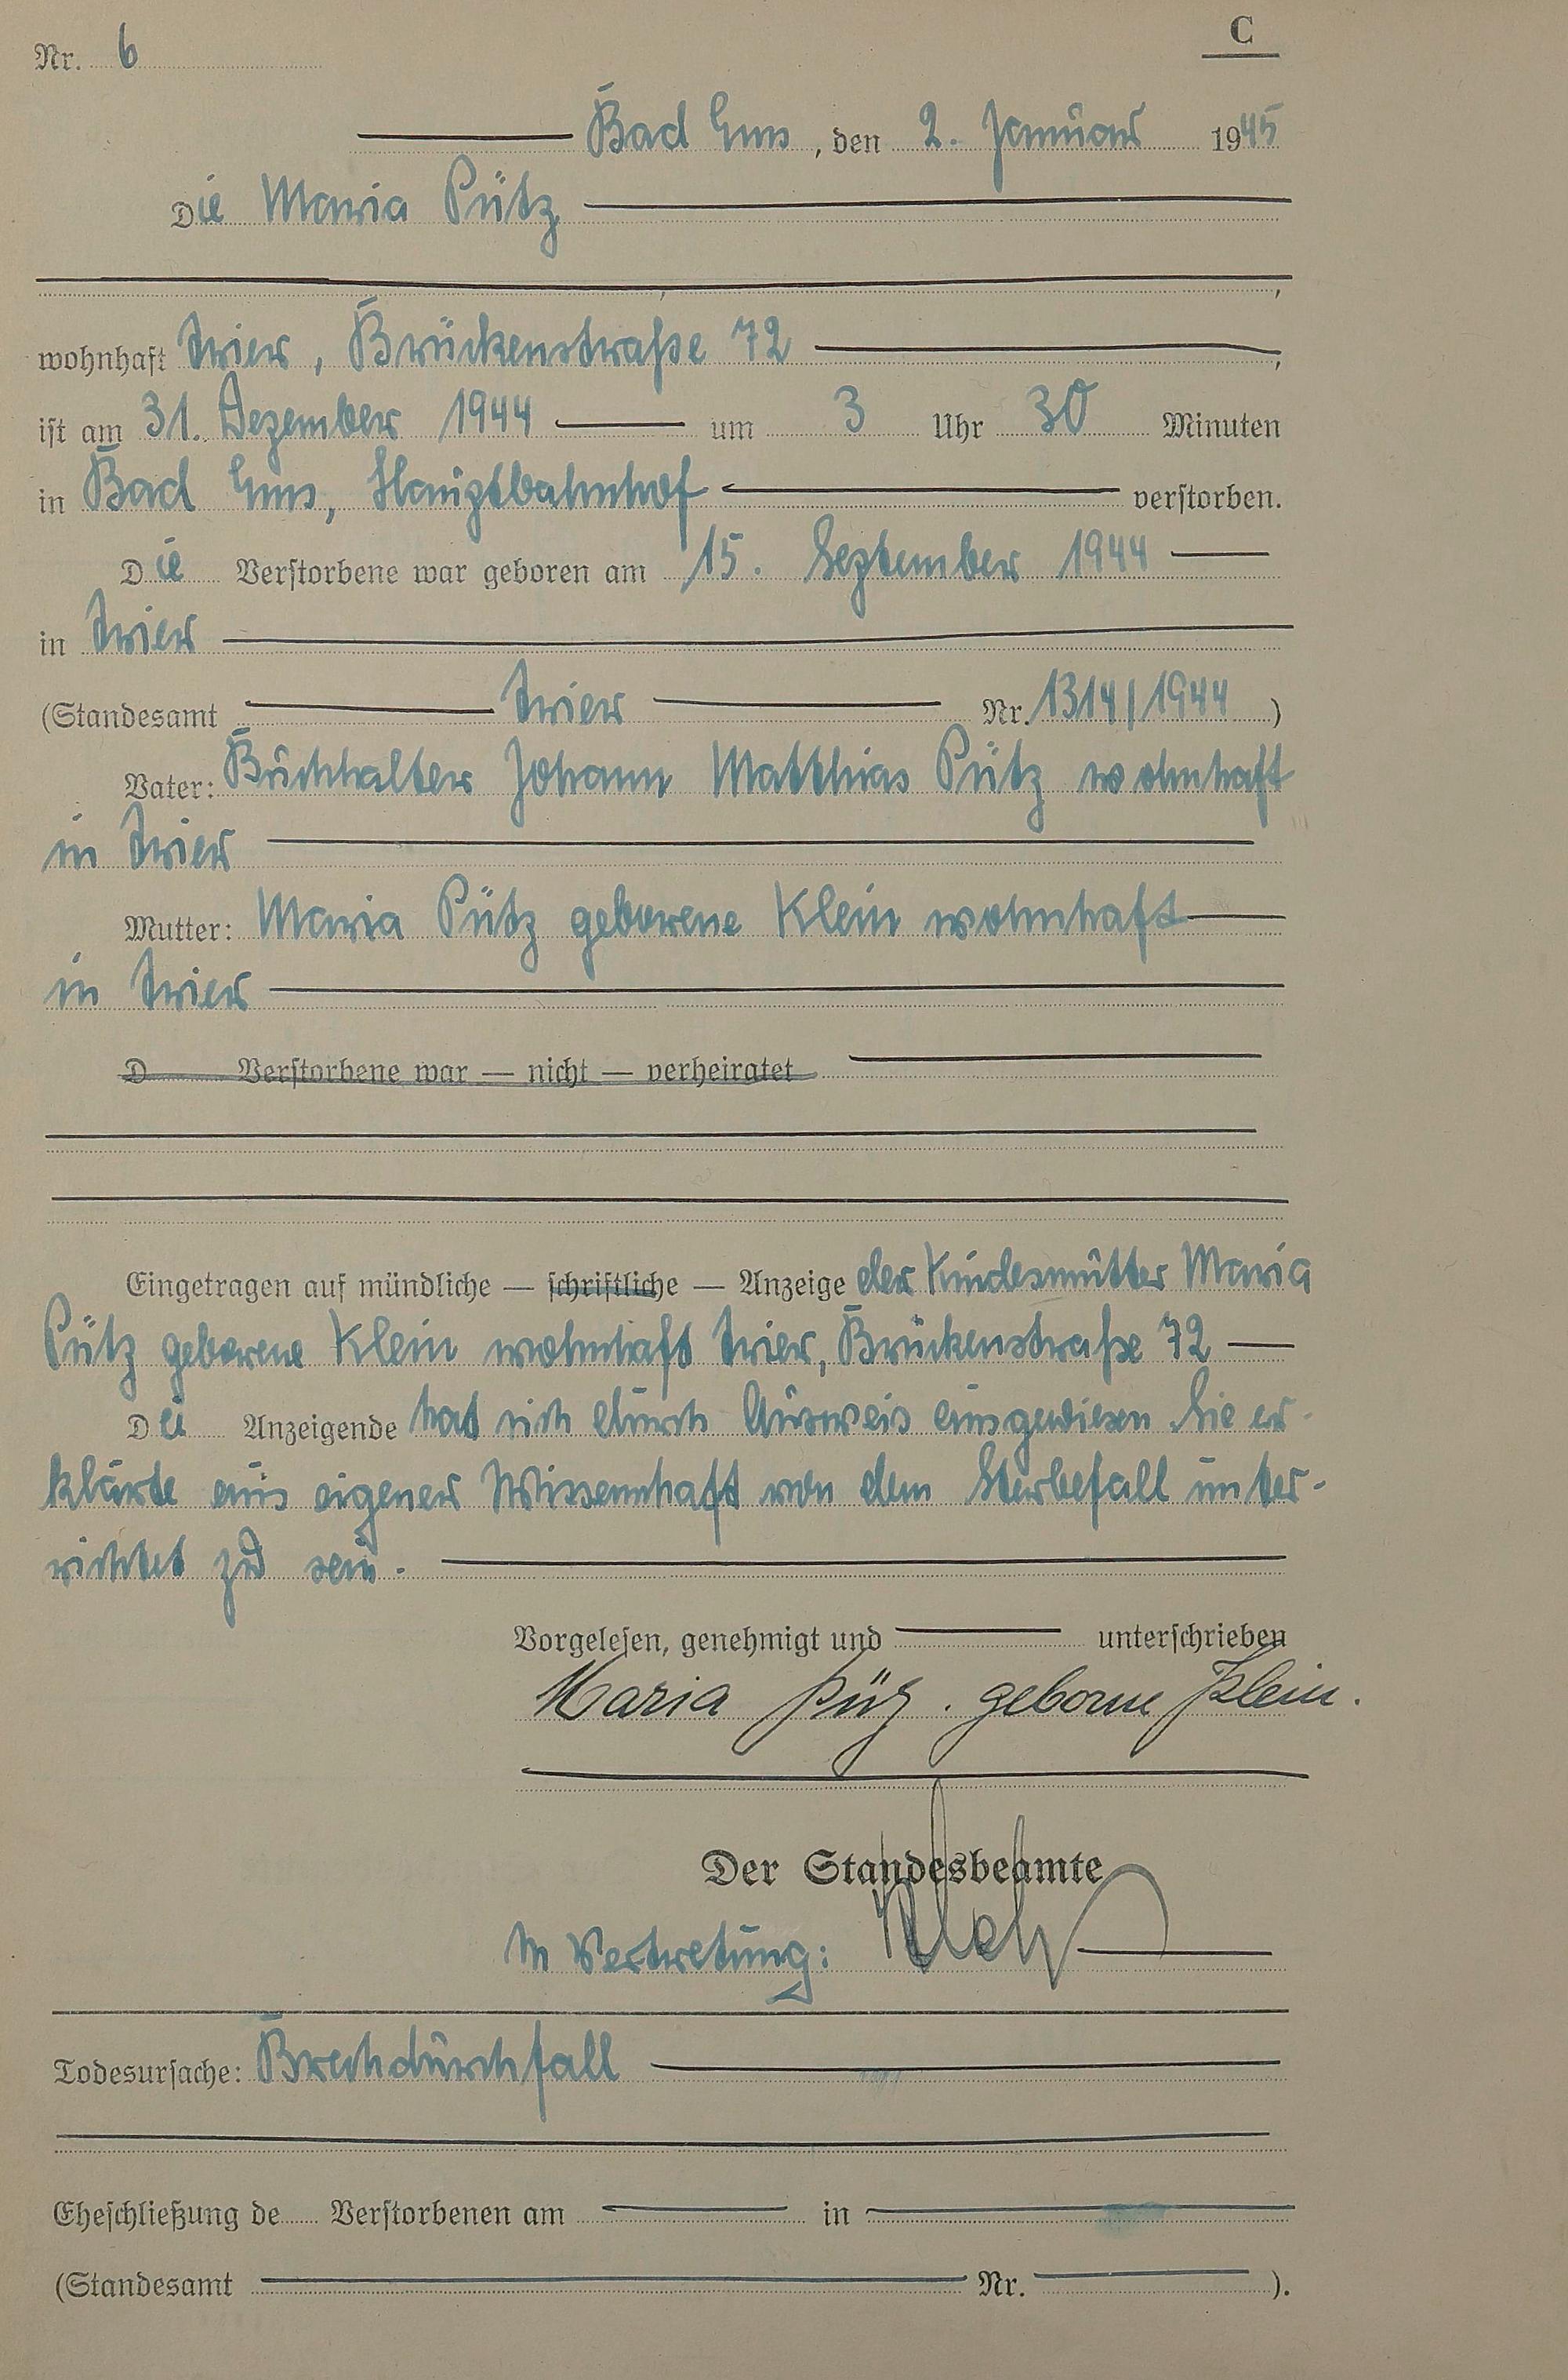 C
Nr. 6
Bad Ems, den 2. Januar 1945
Die Maria Pütz
,
wohnhaft Trier, Brückenstraße 72 ,
ist am 31. Dezember 1944 um 3 Uhr 30 Minuten
in Bad Ems, Hauptbahnhof verstorben.
Die Verstorbene war geboren am 15. September 1944
in Trier
(Standesamt Trier Nr. 1314/1944 )
Vater: Buchhalter Johann Matthias Pütz wohnhaft
in Trier
Mutter: Maria Pütz geborene Klein wohnhaft
in Trier
D Verstorbene war — nicht — verheiratet
Eingetragen auf mündliche — schriftliche — Anzeige der Kindesmutter Maria
Pütz geborene Klein wohnhaft Trier, Brückenstraße 72
Die Anzeigende hat sich durch Ausweis ausgewiesen. Sie er-
klärte aus eigener Wissenschaft von dem Sterbefall unter-
richtet zu sein.
Vorgelesen, genehmigt und unterschrieben
Maria Pütz. geborne Klein.
Der Standesbeamte
In Vertretung:
Todesursache: Brechdurchfall
Eheschließung de Verstorbenen am in
(Standesamt Nr. ).